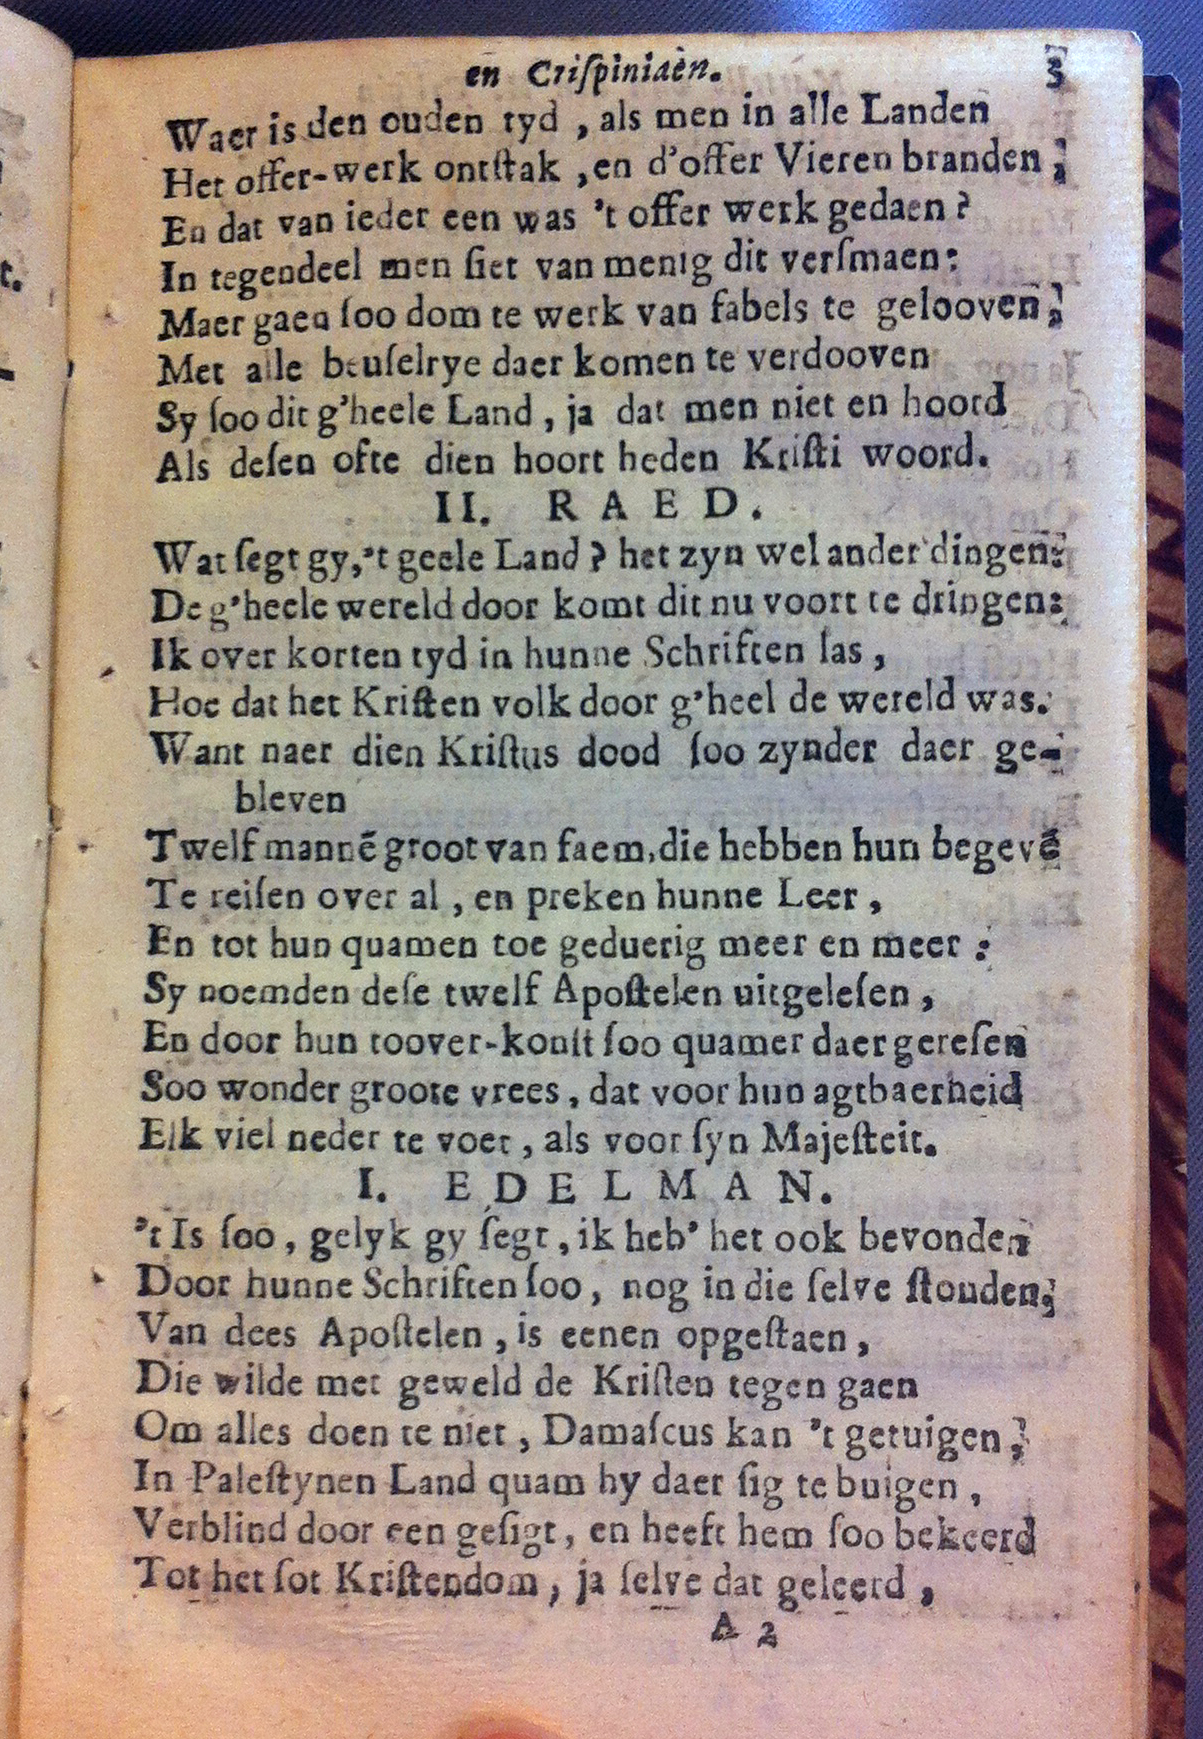 en Criſpiniaèn. 3
Waer is den ouden tyd , als men in alle Landen
Het offer-werk ontſtak ,en d'offer Vieren branden ;
En dat van ieder een was 't offer werk gedaen ?
In tegendeel men ſiet van menig dit verſmaen:
Maer gaen ſoo dom te werk van fabels te gelooven ;
Met alle beuſelrye daer komen te verdooven
Sy ſoo dit g'heele Land , ja dat men niet en hoord
Als deſen ofte dien hoort heden Kriſti woord.
II. RAED.
Wat ſegt gy,'t geele Land ? het zyn wel ander dingen:
De g'heele wereld door komt dit nu voort te dringen:
Ik over korten tyd in hunne Schriften las ,
Hoe dat het Kriſten volk door g'heel de wereld was.
Want naer dien Kriſtus dood ſoo zynder daer ge-
bleven
Twelf mannē groot van faem,die hebben hun begevē
Te reiſen over al , en preken hunne Leer ,
En tot hun quamen toe geduerig meer en meer :
Sy noemden deſe twelf Apoſtelen uitgeleſen ,
En door hun toover-konſt ſoo quamer daer gereſen
Soo wonder groote vrees , dat voor hun agtbaerheid
Elk viel neder te voet , als voor ſyn Majeſteit.
I. EDELMAN.
't Is ſoo , gelyk gy ſegt , ik heb' het ook bevonden
Door hunne Schriften ſoo , nog in die ſelve ſtonden;
Van dees Apoſtelen , is eenen opgeſtaen ,
Die wilde met geweld de Kriſten tegen gaen
Om alles doen te niet , Damaſcus kan 't getuigen ;
In Paleſtynen Land quam hy daer ſig te buigen ,
Verblind door een geſigt , en heeft hem ſoo bekeerd
Tot het ſot Kriſtendom , ja ſelve dat geleerd ,
A 2